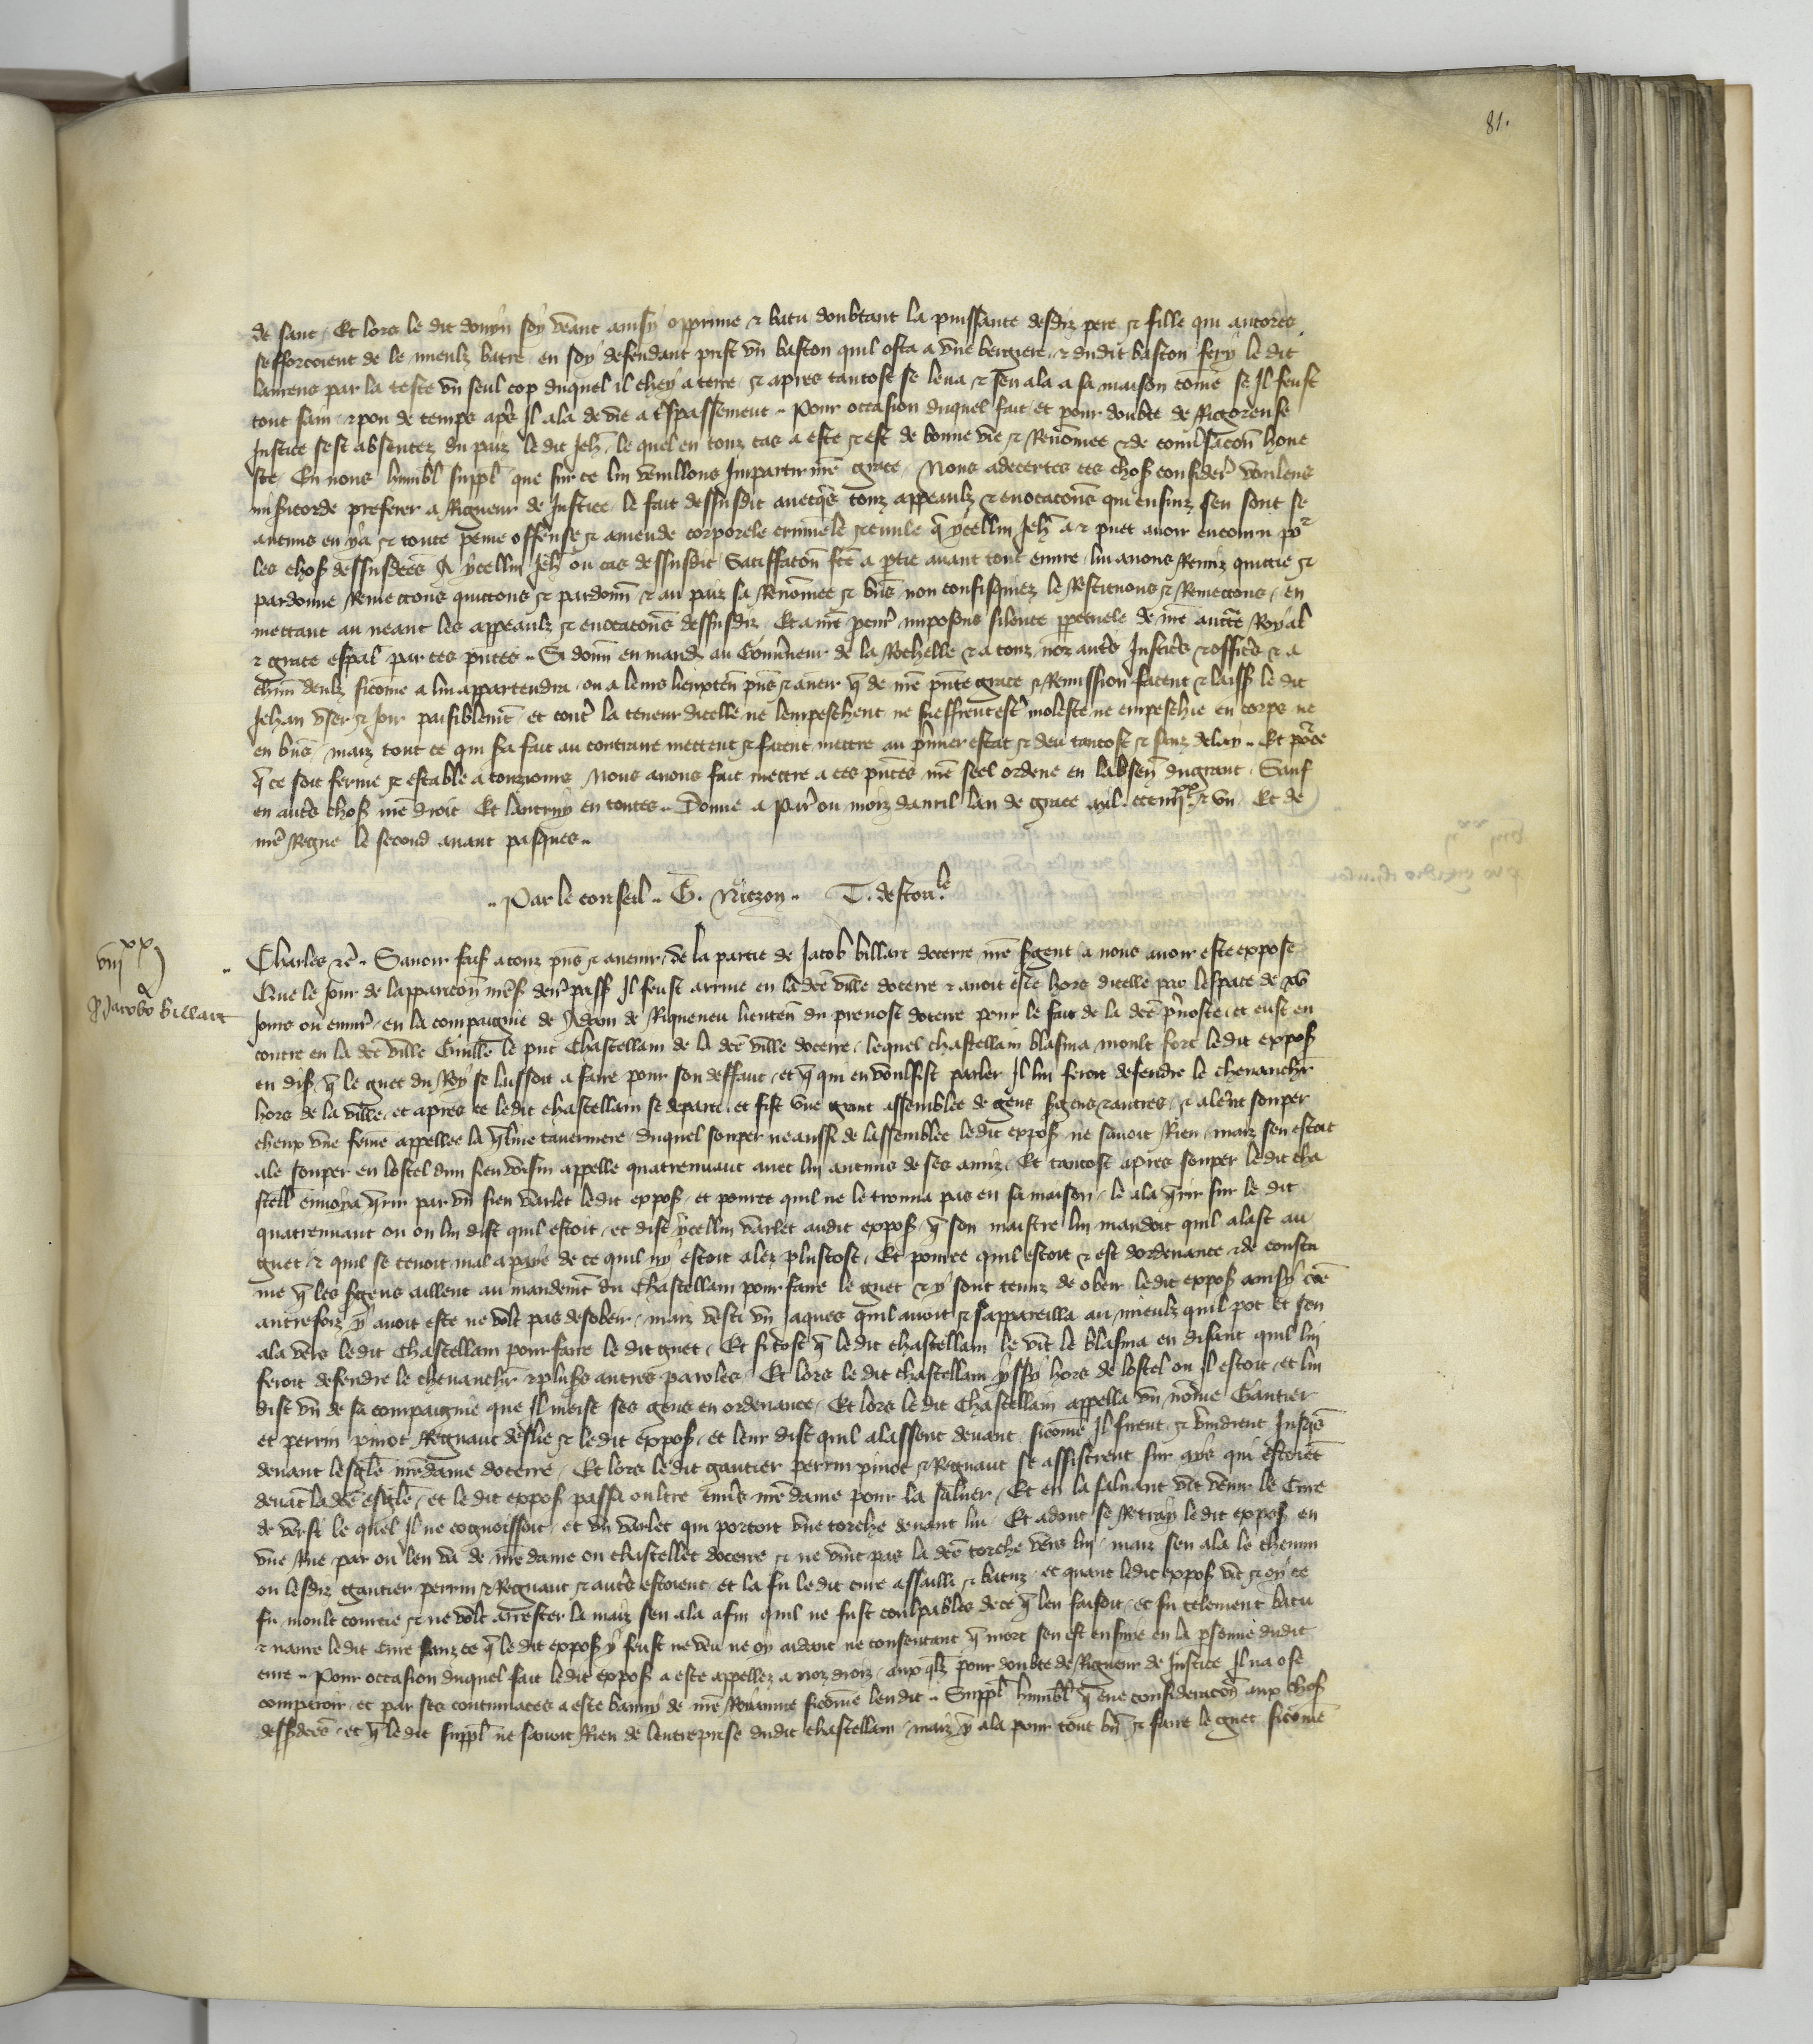 81.
de sanc / Et lors le dit donyn soy veant ainsy opprime & batu doubtant la puissance desdiz pere & fille qui encores
sefforcoient de le mieulz batre / en soy defendant prist vn baston quil osta a vne bergiere / & dudit baston fery le dit
laurens par la teste vn seul cop duquel il chey a terre / & apres tantost se leua & sen ala a sa maison comē se Il feust
tout sain / & pou de temps apres Il ala de vie a trspassement .. Pour occasion duquel fait / et pour doubte de Rigoreuse
Justice sest absentez du paiz le dit Jehn / le quel en touz cas a este & est de bonne vie & Renōmee & de conuersacōn hone
ste / En nous humblt supplt que sur ce lui vueillons Impartir nrē grace / Nous adecertes ces choses consider voulens
misicorde preferer a Rigueur de Justice / le fait dessusdit auecqs touz appeaulz & euocacōns qui ensuiz sen sont se
aucuns en y a & toute peine offense & amende corporele criminele & ciuile q ycellui Jehn a & puet auoir encouru por
les choses dessusdces A ycellui Jehn ou cas dessusdit Satiffacōn fce a ptie auant tout euure / lui auons Remiz quictie &
pardonne Remectons quictons & pardonn & au paiz sa Renōmee & bns non confisquiez le Restituons & Remectons / en
mettant au neant les appeaulz & euocacōns dessusdiz / Et a nrē pcur imposons silence ppetuele de nrē aucte Royal
& grace espal par ces pntes .. Si donn en mand au Gouuneur de la Rochelle & a touz noz autrs Justicrs & officrs & a
chun deulz sicōme a lui appartendra / ou a leurs lieuxten pns & auenir q de nrē pnte grace & Remission facent & laiss le dit
Jehan vser & Joir paisiblemt / et contr la teneur dicelle ne lempeschent ne sueffrent estr moleste ne empeschie en corps ne
en bns / maiz tout ce qui sa fait au contraire mettent & facent mettre au pmier estat & deu tantost & sanz delay .. Et por ce
q ce soit ferme & estable a touziours Nous auons fait mettre a ces pntes nrē seel ordene en labsen du grant / Sauf
en autrs choses nrē droit Et lautruy en toutes .. Donne a Paris ou moiz dauril lan de grace mil ccc iiijxx & vn / Et de
nrē Regne le second auant pasques ..
.. Par le conseil .. G. Niczon .. T. destoule
viijxx j
P Jacobo billart
Charles &c .. Sauoir faisons a touz pns & auenir / de la partie de Jacob billart docerre nrē sgent / a nous auoir este expose
Que le Jour de lapparicōn nrēs denr pass Il feust arriue en la dce ville docerre & auoit este hors dicelle par lespace de xv
Jours ou enuir / en la compaignie de Adam de Riqueneu lieuten du preuost docerre pour le fait de la dce puoste / et eust en
contre en la dce ville Guille le put Chastellain de la dce ville docerre / lequel chastellain blasma moult fort le dit expos
en dis q le guet du Roy se laissoit a faire pour son deffaut / et q qui en voulsist parler Il lui feroit defendre le cheuauchr
hors de la ville / et apres ce le dit chastellain se departi / et fist vne grant assemblee de gens sgens & autres / & alernt souper
cheux vne femē appellee la qline tauerniere / duquel souper ne aussi de lassemblee le dit expos ne sauoit Rien / maiz sen estoit
ale souper en lostel dun sien voisin appelle quatrenuaut auec lui aucuns de ses amiz / Et tantost apres souper le dit cha
stell enuoya qrir par vn sien varlet le dit expos / et pource quil ne le trouua pas en sa maison / le ala qrir sur le dit
quatrenuaut ou on lui dist quil estoit / et dist ycellui varlet audit expos / q son maistre lui mandoit quil alast au
guet / & quil se tenoit mal apaye de ce quil ny estoit alez plustost / Et pource quil estoit & est dordenance & de coustu
me q les sgens aillent au mandemt du Chastellain pour faire le guet & y sont tenuz de obeir / le dit expos ainsy cōe
autresfoiz y auoit este ne volt pas desobeir / maiz vesti vn Jaques quil auoit & sappareilla au mieulz quil pot Et sen
ala vers le dit Chastellain pour faire le dit guet / Et si tost q le dit chastellain le vit le blasma en disant quil lui
feroit defendre le cheuauchr & plusrs autres paroles / Et lors le dit chastellain yssy hors de lostel ou il estoit / et lui
dist vn de sa compaignie que Il meist ses gens en ordenance / Et lors le dit Chastellain appella vn nōme Gautier
et perrin pinot Regnaut deslie & le dit expos / et leur dist quil alassent deuant / sicōme Il firent / & vindrent Jusqs
deuant lesgle nrē dame docerre / Et lors le dit gautier perrin pinot & Regnaut se assistrent sur ays qui estoiēt
deuāt la dce esgle / et le dit expos passa oultre enuers nrē dame pour la saluer / Et en la saluant vit venir le Cure
de versi le quel Il ne cognoissoit / et vn varlet qui portoit vne torche deuant lui / Et adonc se Retray le dit expos en
vne Rue par ou len va de nrē dame ou chastellet docerre & ne vint pas la dce torche vers lui / maiz sen ala le chemin
ou lesdiz gautier perrin & Regnaut & autrs estoient / et la fu le dit cure assailli & batuz / et quant le dit expos vit & oy ce
fu moult courcie & ne volt arrester la maiz sen ala afin quil ne fust coulpables de ce q len faisoit / et fu telement batu
& naure le dit Cure sanz ce q le dit expos y feust ne veu ne oy aidant ne consentant q mort sen est ensuie en la psonne dudit
cure .. Pour occasion duquel fait le dit expos a este appellez a noz droiz / aux qlz pour doubte de Rigueur de Justice Il na ose
comparoir / et par ses contumaces a este banny de nrē Royaume sicōme len dit .. Supplt humblt q eue consideracōn aux choses
dessdces / et q le dit supplt ne sauoit Rien de lentreprise dudit chastellain / maiz y ala pour tout bn & faire le guet sicōme